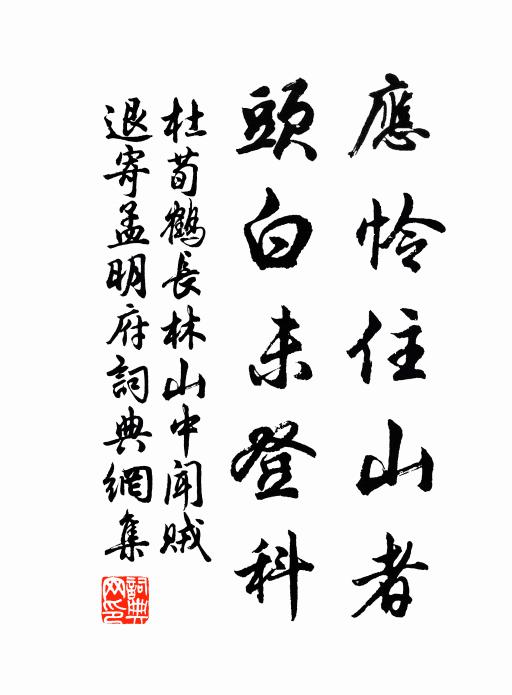 應怜住山者
頭白未登科
杜荀鶴長林山中聞賊
退寄孟明府詞典網集
詞典
网印